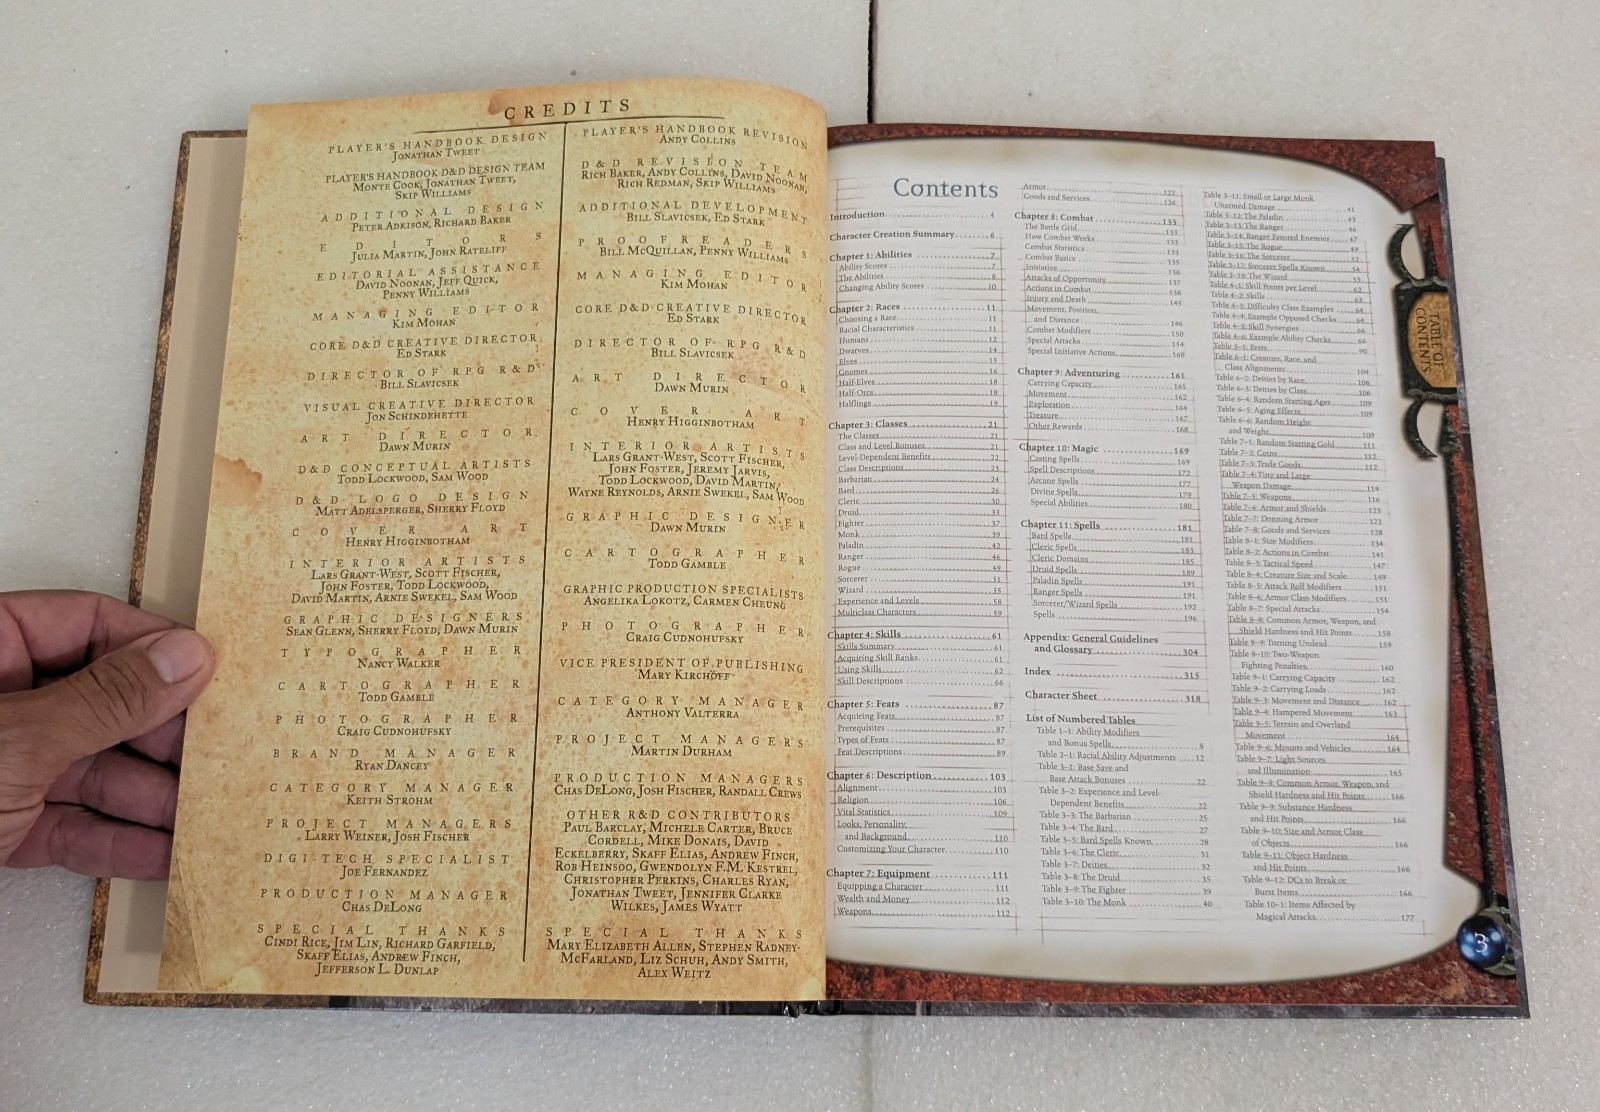 CREDITS
PLAYER'S HANDBOOK DESIGN
JONATHAN TWEET
PLAYER'S HANDBOOK D&D DESIGN TEAM
MONTE COOK, JONATHAN TWEET,
SKIP WILLIAMS
ADDITIONAL DESIGN
PETER ADKISON, RICHARD BAKER
EDITORS
JULIA MARTIN, JOHN RATELIFF
EDITORIAL ASSISTANCE
DAVID NOONAN, JEFF QUICK,
PENNY WILLIAMS
MANAGING EDITOR
KIM MOHAN
CORE D&D CREATIVE DIRECTOR
ED STARK
DIRECTOR OF RPG R&D
BILL SLAVICSEK
VISUAL CREATIVE DIRECTOR
JON SCHINDEHETTE
ART DIRECTOR
DAWN MURIN
D&D CONCEPTUAL ARTISTS
TODD LOCKWOOD, SAM WOOD
D&D LOGO DESIGN
MATT ADELSPERGER, SHERRY FLOYD
COVER ART
HENRY HIGGINBOTHAM
INTERIOR ARTISTS
LARS GRANT-WEST, SCOTT FISCHER,
JOHN FOSTER, TODD LOCKWOOD,
DAVID MARTIN, ARNIE SWEKEL, SAM WOOD
GRAPHIC DESIGNERS
SEAN GLENN, SHERRY FLOYD, DAWN MURIN
TYPOGRAPHER
NANCY WALKER
CARTOGRAPHER
TODD GAMBLE
PHOTOGRAPHER
CRAIG CUDNOHUFSKY
BRAND MANAGER
RYAN DANCEY
CATEGORY MANAGER
KEITH STROHM
PROJECT MANAGERS
LARRY WEINER, JOSH FISCHER
DIGI-TECH SPECIALIST
JOE FERNANDEZ
PRODUCTION MANAGER
CHAS DELONG
SPECIAL THANKS
CINDI RICE, JIM LIN, RICHARD GARFIELD,
SKAFF ELIAS, ANDREW FINCH,
JEFFERSON L. DUNLAP
PLAYER'S HANDBOOK REVISION
ANDY COLLINS
D&D REVISION TEAM
RICH BAKER, ANDY COLLINS, DAVID NOONAN,
RICH REDMAN, SKIP WILLIAMS
ADDITIONAL DEVELOPMENT
BILL SLAVICSEK, ED STARK
PROOFREADERS
BILL MCQUILLAN, PENNY WILLIAMS
MANAGING EDITOR
KIM MOHAN
CORE D&D CREATIVE DIRECTOR
ED STARK
DIRECTOR OF RPG R&D
BILL SLAVICSEK
ART DIRECTOR
DAWN MURIN
COVER ART
HENRY HIGGINBOTHAM
INTERIOR ARTISTS
LARS GRANT-WEST, SCOTT FISCHER,
JOHN FOSTER, JEREMY JARVIS,
TODD LOCKWOOD, DAVID MARTIN,
WAYNE REYNOLDS, ARNIE SWEKEL, SAM WOOD
GRAPHIC DESIGNER
DAWN MURIN
CARTOGRAPHER
TODD GAMBLE
GRAPHIC PRODUCTION SPECIALISTS
ANGELIKA LOKOTZ, CARMEN CHEUNG
PHOTOGRAPHER
CRAIG CUDNOHUFSKY
VICE PRESIDENT OF PUBLISHING
MARY KIRCHOFF
CATEGORY MANAGER
ANTHONY VALTERRA
PROJECT MANAGERS
MARTIN DURHAM
PRODUCTION MANAGERS
CHAS DELONG, JOSH FISCHER, RANDALL CREWS
OTHER R&D CONTRIBUTORS
PAUL BARCLAY, MICHELE CARTER, BRUCE
CORDELL, MIKE DONAIS, DAVID
ECKELBERRY, SKAFF ELIAS, ANDREW FINCH,
ROB HEINSOO, GWENDOLYN F.M. KESTREL,
CHRISTOPHER PERKINS, CHARLES RYAN,
JONATHAN TWEET, JENNIFER CLARKE
WILKES, JAMES WYATT
SPECIAL THANKS
MARY ELIZABETH ALLEN, STEPHEN RADNEY-
MCFARLAND, LIZ SCHUH, ANDY SMITH,
ALEX WEITZ
Contents
Introduction 4
Character Creation Summary 6
Chapter 1: Abilities 7
Ability Scores 7
The Abilities 8
Changing Ability Scores 10
Chapter 2: Races 11
Choosing a Race 11
Racial Characteristics 11
Humans 12
Dwarves 14
Elves 15
Gnomes 16
Half-Elves 18
Half-Orcs 18
Halflings 19
Chapter 3: Classes 21
The Classes 21
Class and Level Bonuses 21
Level-Dependent Benefits 22
Class Descriptions 23
Barbarian 24
Bard 26
Cleric 30
Druid 33
Fighter 37
Monk 39
Paladin 42
Ranger 46
Rogue 49
Sorcerer 51
Wizard 55
Experience and Levels 58
Multiclass Characters 59
Chapter 4: Skills 61
Skills Summary 61
Acquiring Skill Ranks 61
Using Skills 62
Skill Descriptions 66
Chapter 5: Feats 87
Acquiring Feats 87
Prerequisites 87
Types of Feats 87
Feat Descriptions 89
Chapter 6: Description 103
Alignment 103
Religion 106
Vital Statistics 109
Looks, Personality,
and Background 110
Customizing Your Character 110
Chapter 7: Equipment 111
Equipping a Character 111
Wealth and Money 112
Weapons 112
Armor 122
Goods and Services 126
Chapter 8: Combat 133
The Battle Grid 133
How Combat Works 133
Combat Statistics 133
Combat Basics 135
Initiative 136
Attacks of Opportunity 137
Actions in Combat 138
Injury and Death 145
Movement, Position,
and Distance 146
Combat Modifiers 150
Special Attacks 154
Special Initiative Actions 160
Chapter 9: Adventuring 161
Carrying Capacity 161
Movement 162
Exploration 164
Treasure 167
Other Rewards 168
Chapter 10: Magic 169
Casting Spells 169
Spell Descriptions 172
Arcane Spells 177
Divine Spells 179
Special Abilities 180
Chapter 11: Spells 181
Bard Spells 181
Cleric Spells 183
Cleric Domains 185
Druid Spells 189
Paladin Spells 191
Ranger Spells 191
Sorcerer/Wizard Spells 192
Spells 196
Appendix: General Guidelines
and Glossary 304
Index 315
Character Sheet 318
List of Numbered Tables
Table 1–1: Ability Modifiers
and Bonus Spells 8
Table 2–1: Racial Ability Adjustments 12
Table 3–1: Base Save and
Base Attack Bonuses 22
Table 3–2: Experience and Level-
Dependent Benefits 22
Table 3–3: The Barbarian 25
Table 3–4: The Bard 27
Table 3–5: Bard Spells Known 28
Table 3–6: The Cleric 31
Table 3–7: Deities 32
Table 3–8: The Druid 35
Table 3–9: The Fighter 39
Table 3–10: The Monk 40
Table 3–11: Small or Large Monk
Unarmed Damage 41
Table 3–12: The Paladin 43
Table 3–13: The Ranger 46
Table 3–14: Ranger Favored Enemies 47
Table 3–15: The Rogue 49
Table 3–16: The Sorcerer 52
Table 3–17: Sorcerer Spells Known 54
Table 3–18: The Wizard 55
Table 4–1: Skill Points per Level 62
Table 4–2: Skills 63
Table 4–3: Difficulty Class Examples 64
Table 4–4: Example Opposed Checks 64
Table 4–5: Skill Synergies 66
Table 4–6: Example Ability Checks 66
Table 5–1: Feats 90
Table 6–1: Creature, Race, and
Class Alignments 104
Table 6–2: Deities by Race 106
Table 6–3: Deities by Class 106
Table 6–4: Random Starting Ages 109
Table 6–5: Aging Effects 109
Table 6–6: Random Height
and Weight 109
Table 7–1: Random Starting Gold 111
Table 7–2: Coins 112
Table 7–3: Trade Goods 112
Table 7–4: Tiny and Large
Weapon Damage 114
Table 7–5: Weapons 116
Table 7–6: Armor and Shields 123
Table 7–7: Donning Armor 123
Table 7–8: Goods and Services 128
Table 8–1: Size Modifiers 134
Table 8–2: Actions in Combat 141
Table 8–3: Tactical Speed 147
Table 8–4: Creature Size and Scale 149
Table 8–5: Attack Roll Modifiers 151
Table 8–6: Armor Class Modifiers 151
Table 8–7: Special Attacks 154
Table 8–8: Common Armor, Weapon, and
Shield Hardness and Hit Points 158
Table 8–9: Turning Undead 159
Table 8–10: Two-Weapon
Fighting Penalties 160
Table 9–1: Carrying Capacity 162
Table 9–2: Carrying Loads 162
Table 9–3: Movement and Distance 162
Table 9–4: Hampered Movement 163
Table 9–5: Terrain and Overland
Movement 164
Table 9–6: Mounts and Vehicles 164
Table 9–7: Light Sources
and Illumination 165
Table 9–8: Common Armor, Weapon, and
Shield Hardness and Hit Points 166
Table 9–9: Substance Hardness
and Hit Points 166
Table 9–10: Size and Armor Class
of Objects 166
Table 9–11: Object Hardness
and Hit Points 166
Table 9–12: DCs to Break or
Burst Items 166
Table 10–1: Items Affected by
Magical Attacks 177
TABLE OF
CONTENTS
3